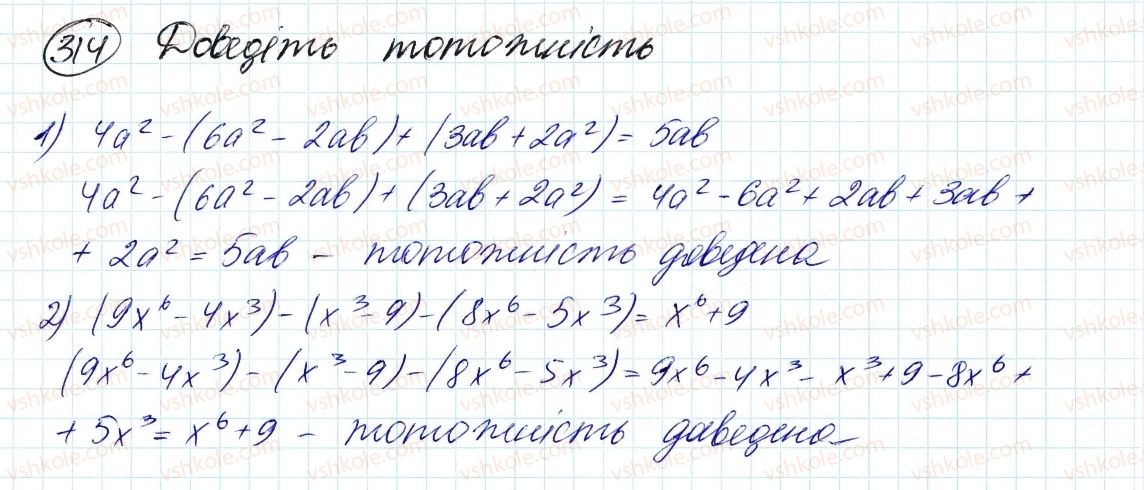 314 Доведіть тотожність
1) 4a² - (6a² - 2ab) + (3ab + 2a²) = 5ab
4a² - (6a² - 2ab) + (3ab + 2a²) = 4a² - 6a² + 2ab + 3ab +
+ 2a² = 5ab - тотожність доведена
2) (9x⁶ - 4x³) - (x³ - 9) - (8x⁶ - 5x³) = x⁶ + 9
(9x⁶ - 4x³) - (x³ - 9) - (8x⁶ - 5x³) = 9x⁶ - 4x³ - x³ + 9 - 8x⁶ +
+ 5x³ = x⁶ + 9 - тотожність доведена